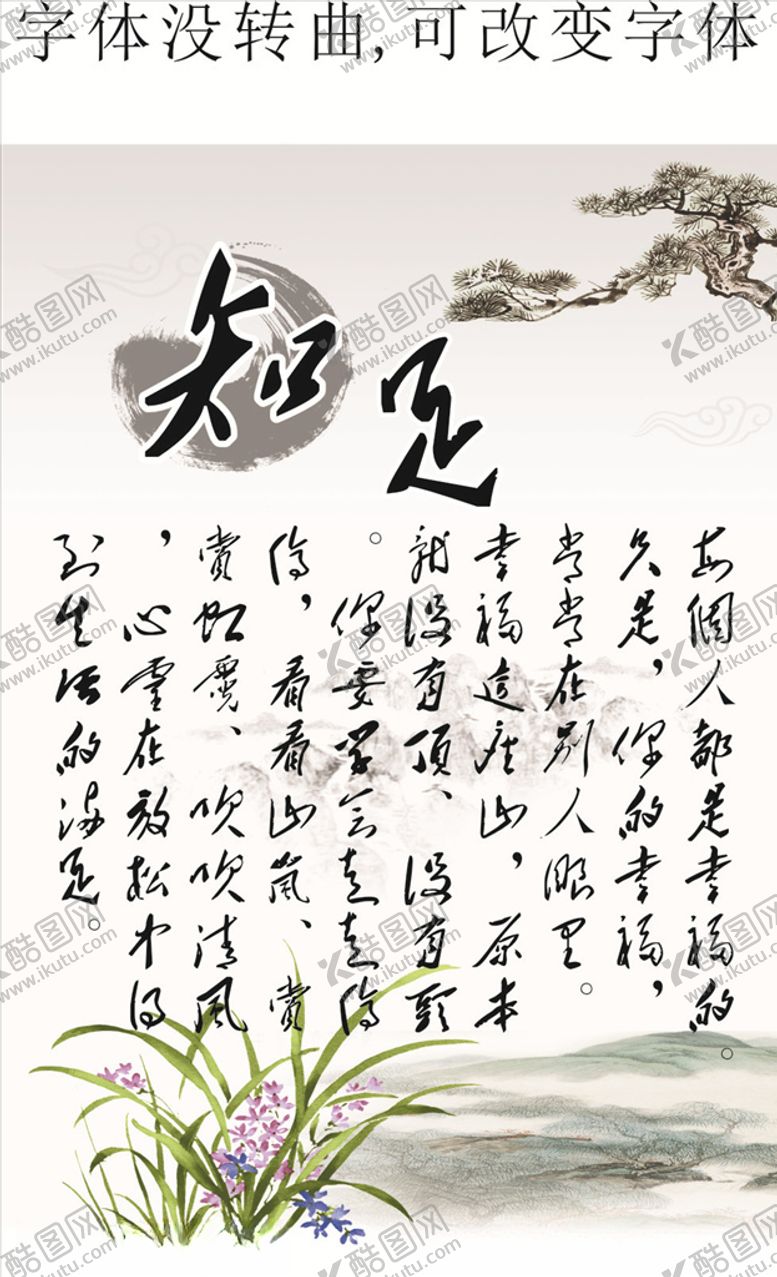 字体没转曲,可改变字体
知足
每個人都是幸福的。
只是，你的幸福，
常常在别人眼里。
幸福這座山，原本
就没有頂、没有頭
。你要學会走走停
停，看看山嵐、賞
賞虹霓、吹吹清風
，心靈在放松中得
到生活的滿足。
酷图网
www.ikutu.com